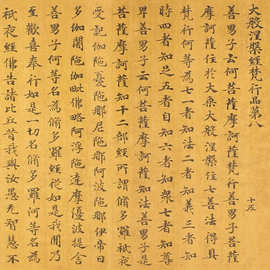 大般涅槃經梵行品第八 十五
善男子云何菩薩摩訶薩梵行善男子菩薩
摩訶薩住於大乘大般涅槃住七善法得具
梵行何等為七一者知法二者知義三者知
時四者知足五者自知六者知衆七者知尊
卑善男子云何菩薩摩訶薩知法善男子是
菩薩摩訶薩知十二部經所謂脩多羅祇夜
受記伽陀憂陀那尼陀那阿波陀那伊帝曰
多伽闍陀伽毗佛略阿浮陀達摩優波提舍
善男子何等名為脩多羅經從如是我聞乃
至歡喜奉行如是一切名脩多羅何等名為
祇夜經佛告諸比丘昔我與汝愚无智慧不